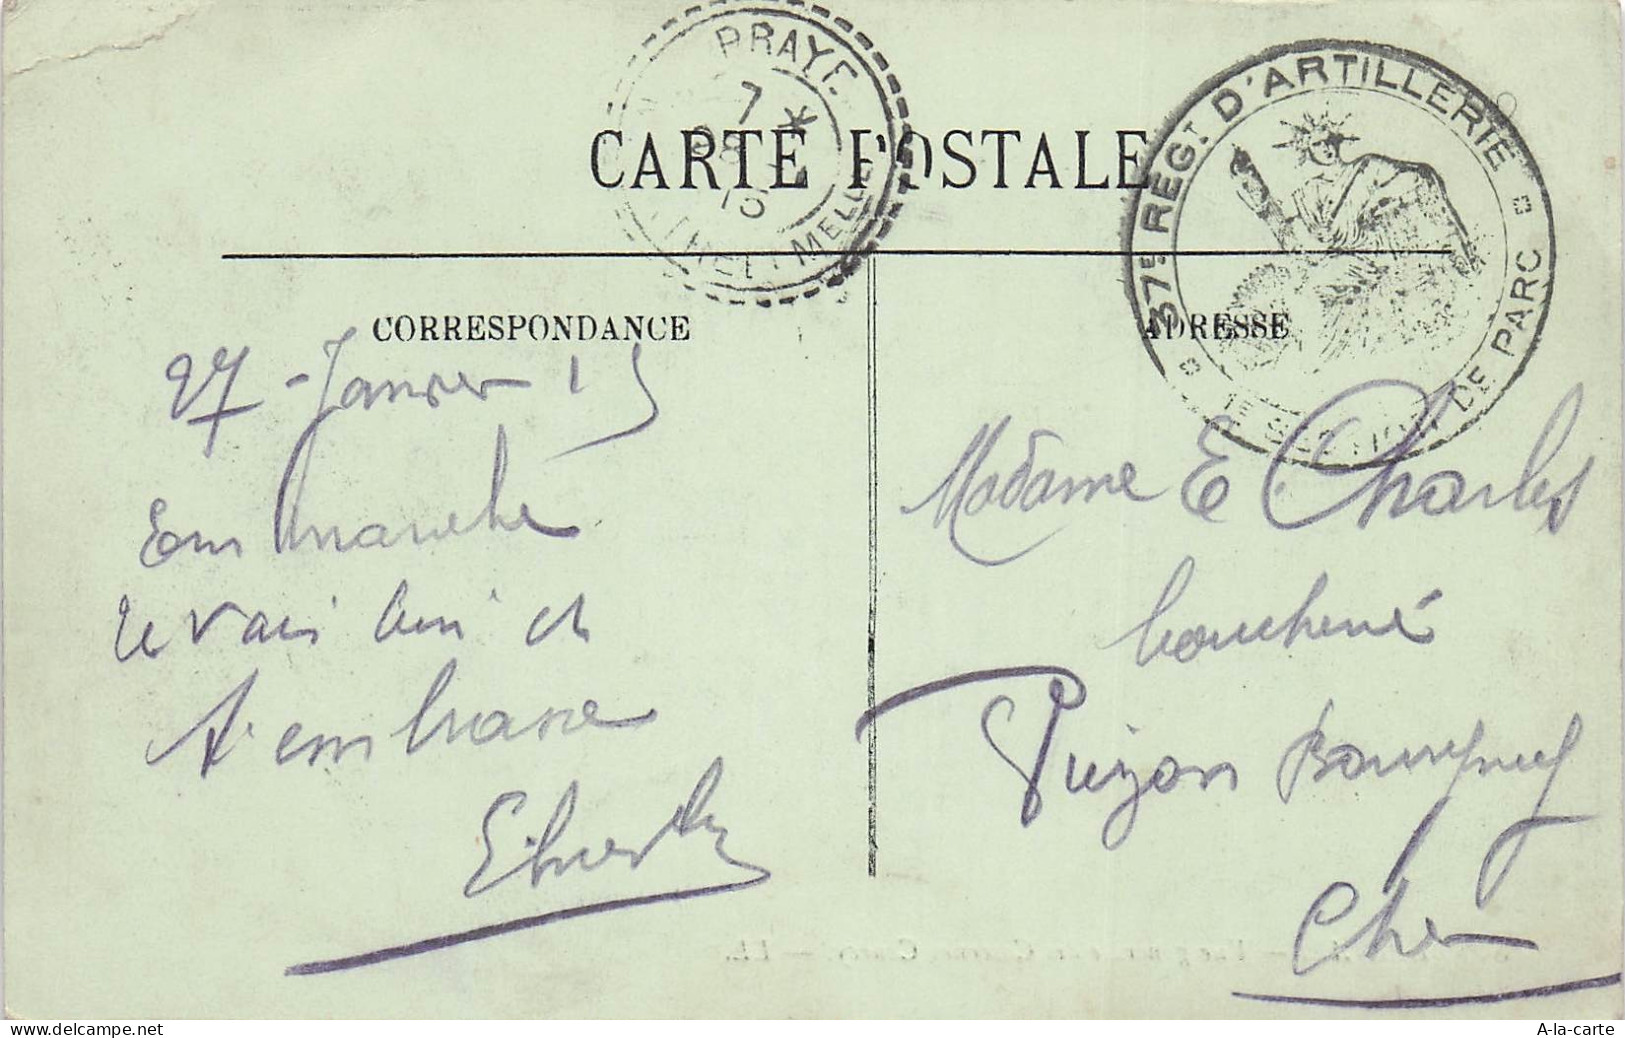 PRAYE
7
28
15
MEURTHE-ET-MELLE
CARTE POSTALE
37E REGT D'ARTILLERIE
1E SECTION DE PARC
CORRESPONDANCE
ADRESSE
27 - Janvier 15
En marche
Je vais bien et
t'embrasse
Madame E Charles
Prizon Boumgneuf
Cher
www.delcampe.net
A-la-carte